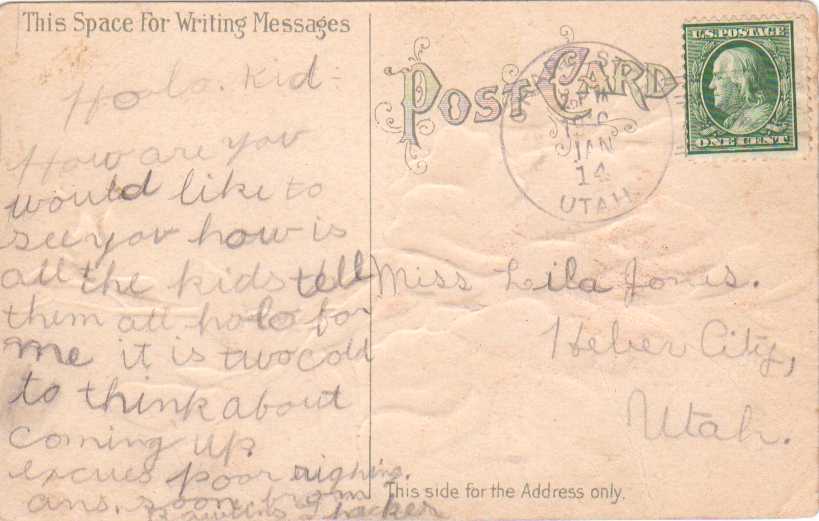 This Space For Writing Messages
Holo. Kid-
How are you
would like to
see you how is
all the kids tell
them all holo for
me it is two cold
to think about
coming up
excues poor righing.
ans. soon from
Thacker
POST CARD
JAN
14
UTAH
U.S. POSTAGE
ONE CENT
Miss Lila Jones.
Heber City,
Utah.
This side for the Address only.